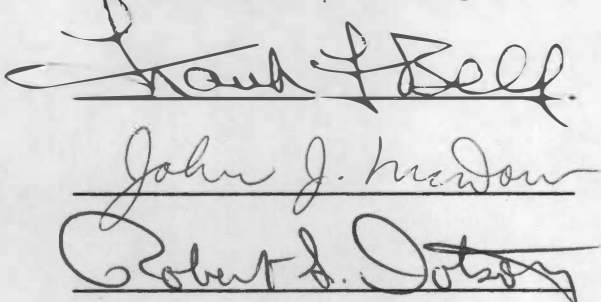 Frank F Bell.
John J. McDow
Robert S. Dotson